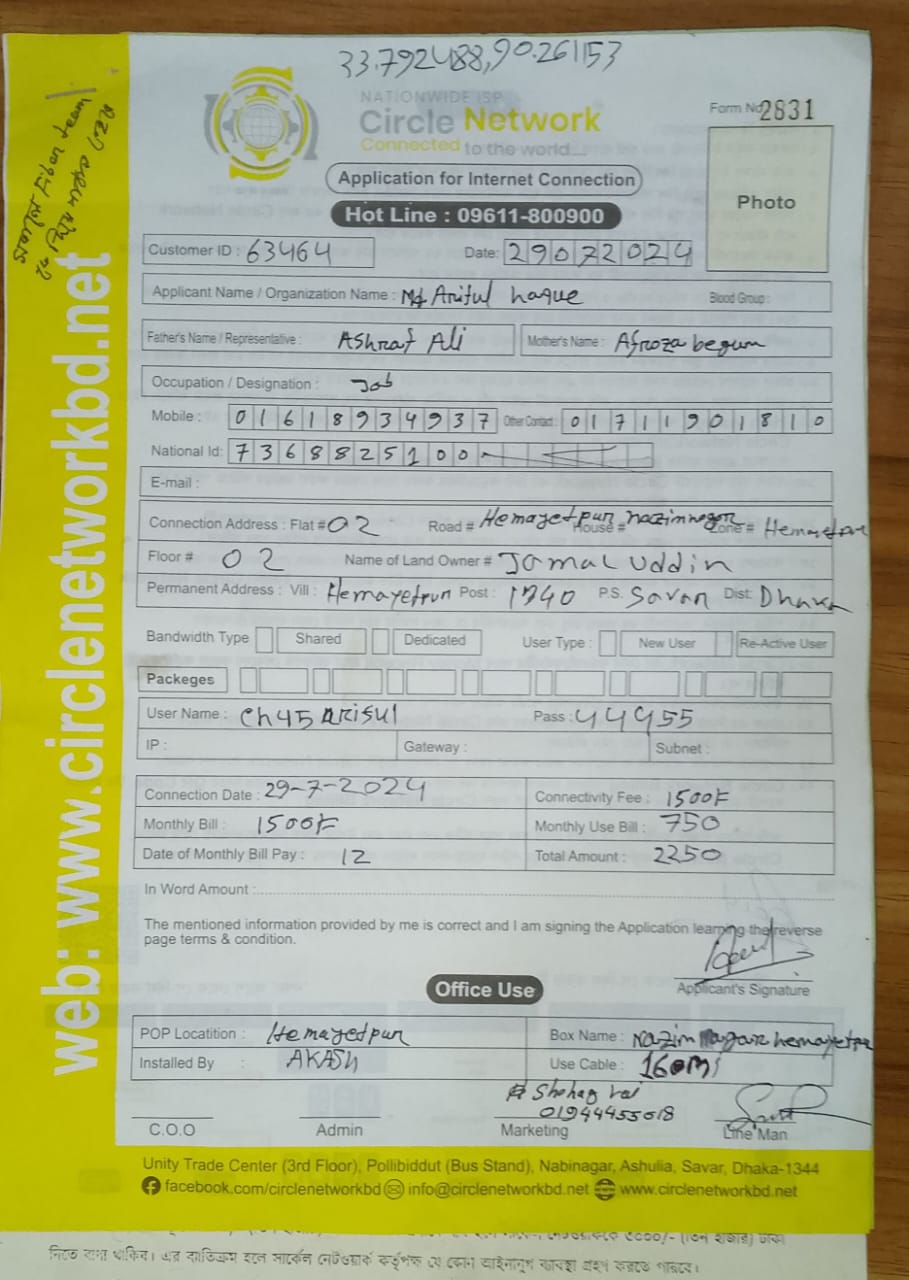 33.792488,90.261153
NATIONWIDE ISP
Circle Network
Connected to the world...
Form No 2831
Photo
Application for Internet Connection
Hot Line : 09611-800900
Customer ID : 63464 Date: 29072024
Applicant Name / Organization Name : Md Ariful haque Blood Group :
Father's Name / Representative : Ashraf Ali Mother's Name : Afroza begum
Occupation / Designation : Job
Mobile : 01618934937 Other Contact : 01711901810
National Id: 7368825100
E-mail :
Connection Address : Flat # 02 Road # Hemayetpur House # nazimnagor Zone # Hemayetpur
Floor # 02 Name of Land Owner # Jamal Uddin
Permanent Address : Vill : Hemayetpur Post : 1340 P.S. Savar Dist: Dhaka
Bandwidth Type Shared Dedicated User Type : New User Re-Active User
Packeges
User Name : Ch45 Arisul Pass : 44955
IP : Gateway : Subnet :
Connection Date : 29-7-2024 Connectivity Fee : 1500৳
Monthly Bill : 1500৳ Monthly Use Bill : 750
Date of Monthly Bill Pay : 12 Total Amount : 2250
In Word Amount :
The mentioned information provided by me is correct and I am signing the Application learning the reverse
page terms & condition.
Applicant's Signature
Office Use
POP Locatition : Hemayetpur Box Name : Nazim Nagar hemayetpur
Installed By : AKASH Use Cable : 160m
Shohag vai
01944455618
C.O.O Admin Marketing Line Man
Unity Trade Center (3rd Floor), Pollibiddut (Bus Stand), Nabinagar, Ashulia, Savar, Dhaka-1344
facebook.com/circlenetworkbd info@circlenetworkbd.net www.circlenetworkbd.net
web: www.circlenetworkbd.net
নিতে বাধ্য থাকিব। এর ব্যতিক্রম হলে সার্কেল নেটওয়ার্ক কর্তৃপক্ষ যে কোন আইনানুগ ব্যবস্থা গ্রহণ করতে পারবে।